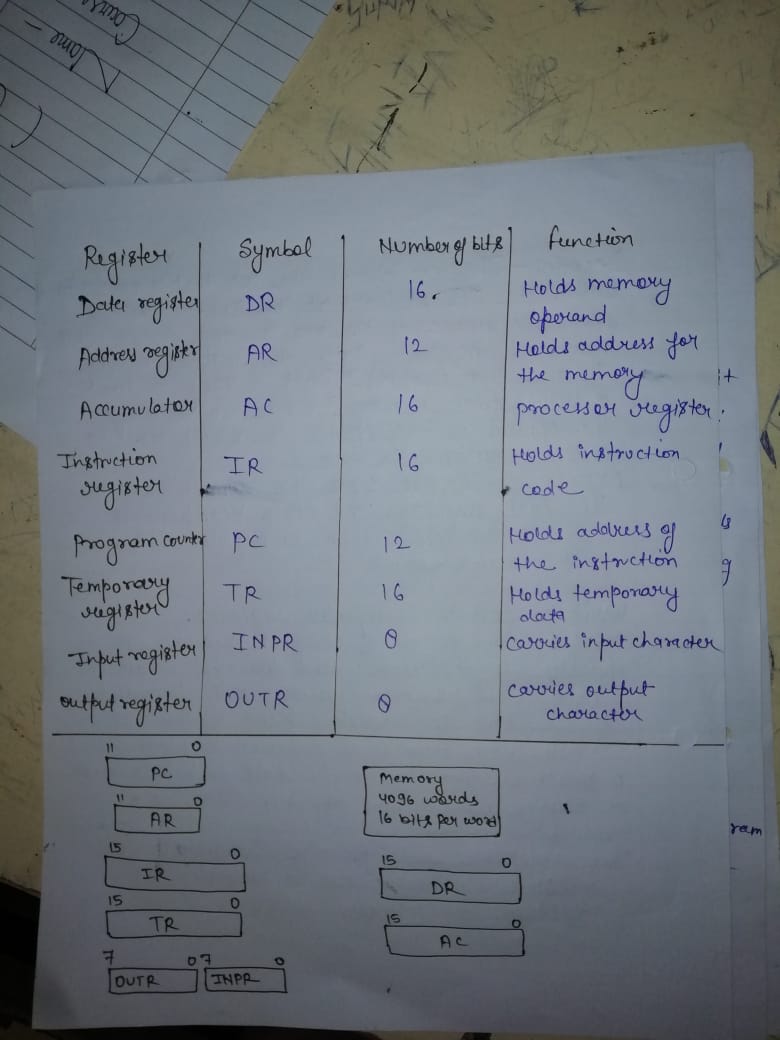 Name -
Register Symbol Number of bits function
Data register DR 16. Holds memory
operand
Address register AR 12 Holds address for
the memory
Accumulator AC 16 processor register.
Instruction IR 16 Holds instruction
register code
Program counter PC 12 Holds address of
the instruction
Temporary TR 16 Holds temporary
register data
Input register INPR 8 carries input character
output register OUTR 8 carries output
character
11 0
PC
11 0
AR
15 0
IR
15 0
TR
7 0 7 0
OUTR INPR
Memory
4096 words
16 bits per word
15 0
DR
15 0
AC
it
ram